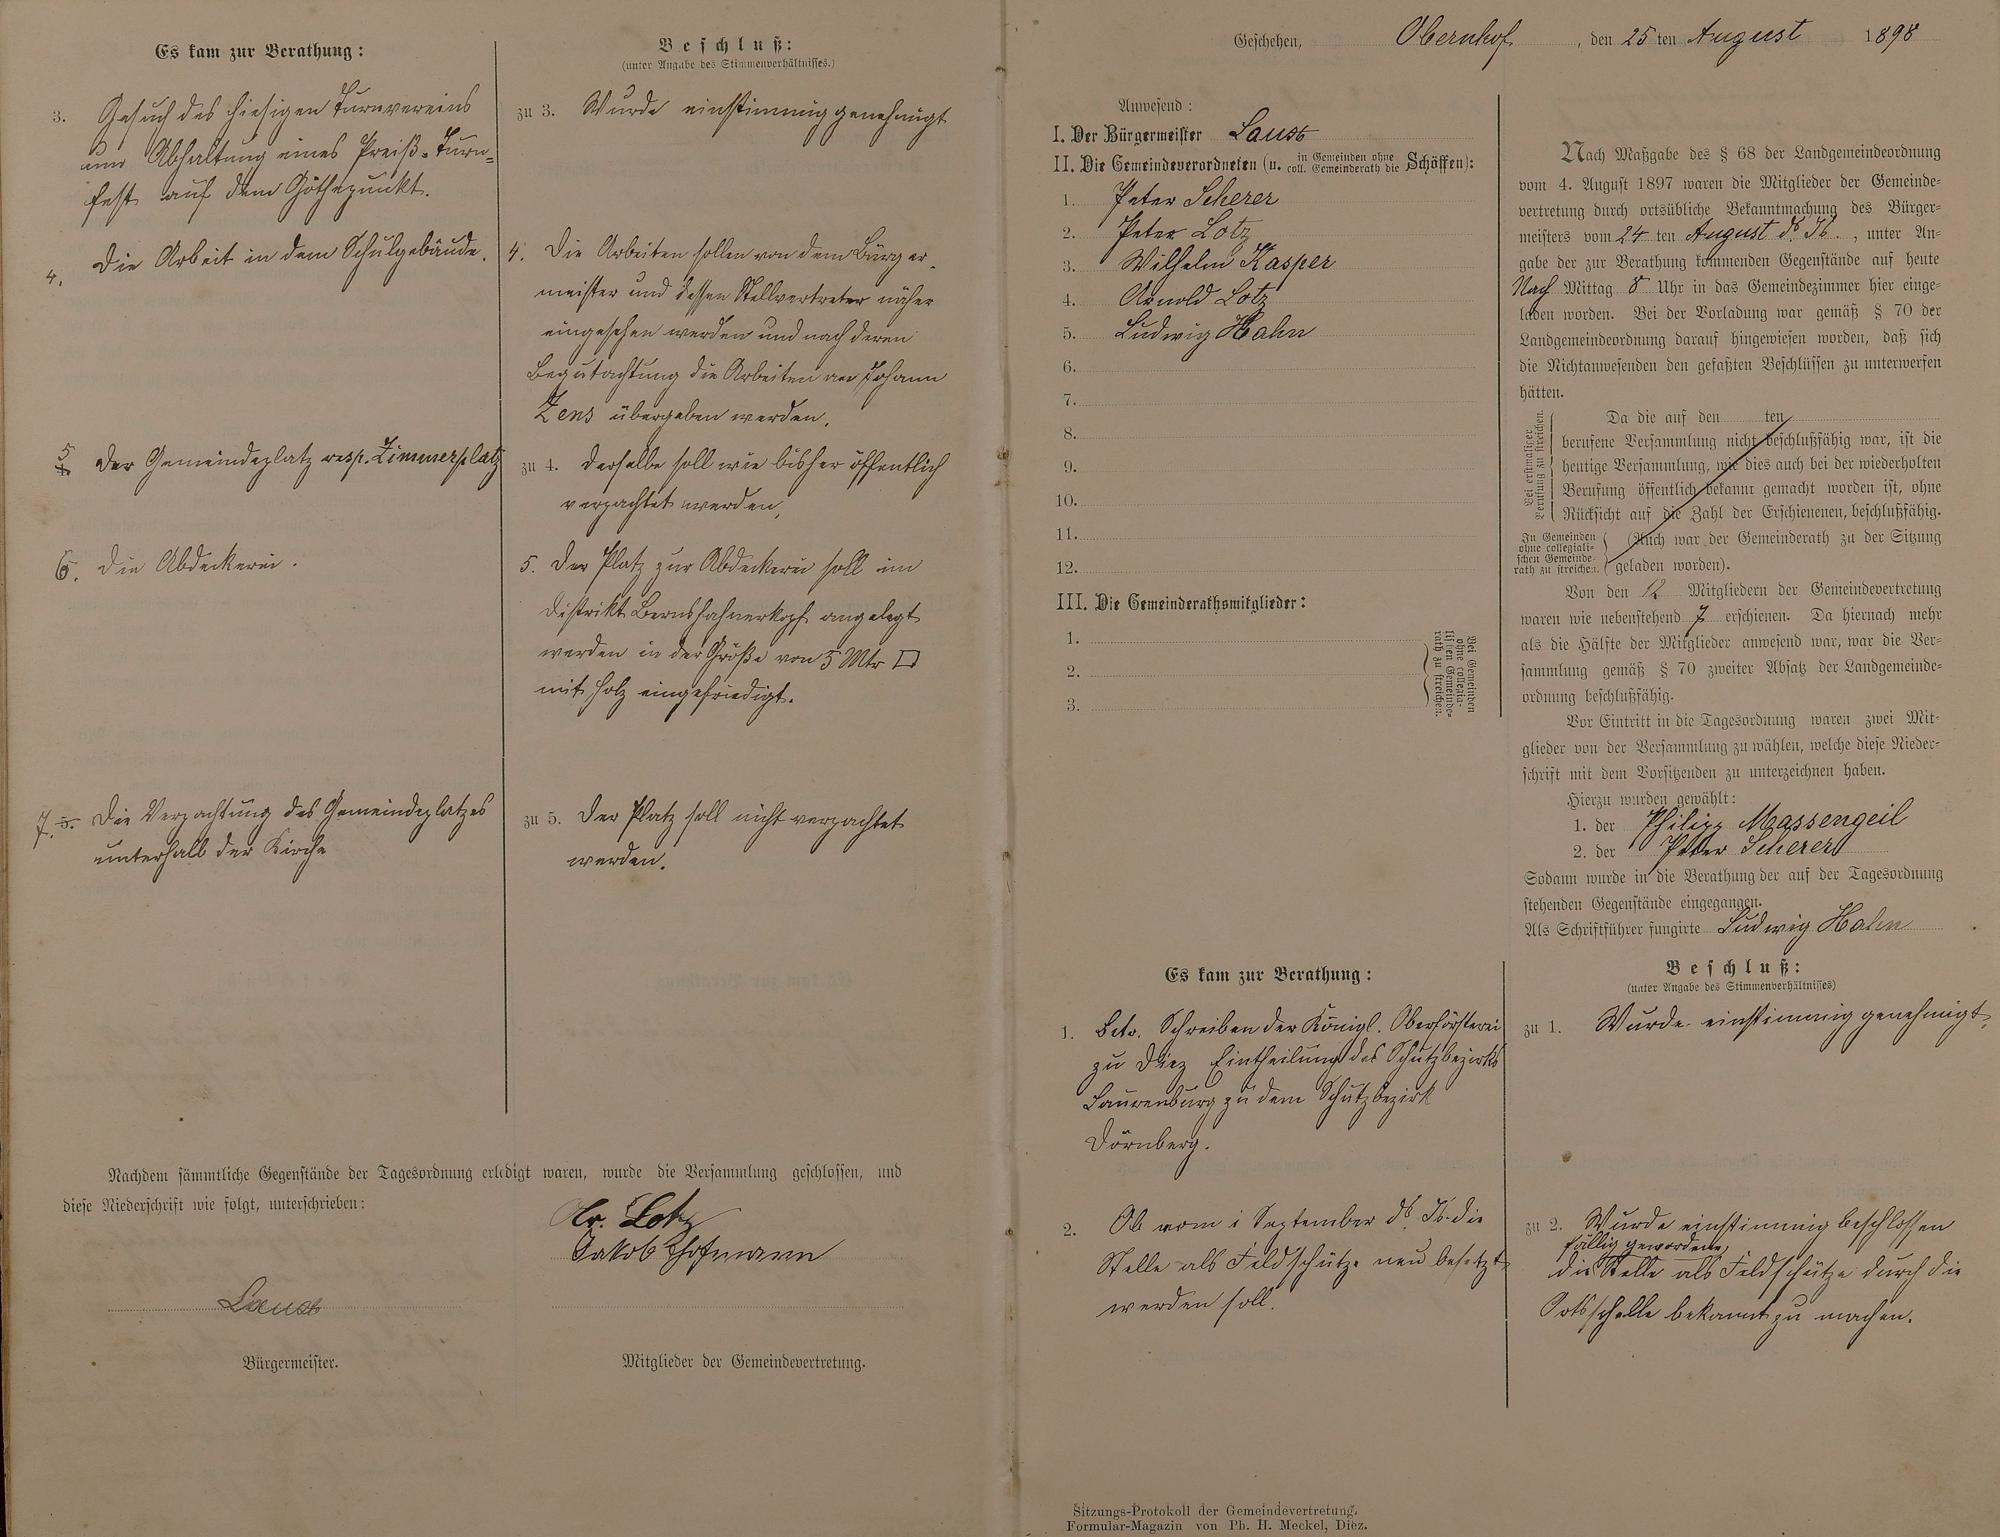 Es kam zur Berathung:
Beschluß:
(unter Angabe des Stimmenverhältnisses.)
3. Gesuch des hiesigen Turnvereins
um Abhaltung eines Preiß-Turn-
fest auf dem Göthepunkt.
zu 3. Wurde einstimmig genehmigt
4. Die Arbeit in dem Schulgebäude.
4. Die Arbeiten sollen von dem Bürger-
meister und dessen Stellvertreter näher
eingesehen werden und nach deren
Begutachtung die Arbeiten an Johann
Zens übergeben werden.
5 Der Gemeindeplatz resp. Zimmerplatz
zu 4. Derselbe soll wie bisher öffentlich
verpachtet werden.
6. Die Abdeckerei.
5. Der Platz zur Abdeckerei soll im
Distrikt Bernshahnerkopf angelegt
werden in der Größe von 5 Mtr □
mit Holz eingefriedigt.
7. 5. Die Verpachtung des Gemeindeplatzes
unterhalb der Kirche
zu 5. Der Platz soll nicht verpachtet
werden.
Nachdem sämmtliche Gegenstände der Tagesordnung erledigt waren, wurde die Versammlung geschlossen, und
diese Niederschrift wie folgt, unterschrieben:
Ar. Lotz
Jakob Hofmann
Laux
Bürgermeister.
Mitglieder der Gemeindevertretung.
Geschehen, Obernhof, den 25 ten August 1898
Anwesend:
I. Der Bürgermeister Laux
II. Die Gemeindeverordneten (u. in Gemeinden ohne coll. Gemeinderath die Schöffen):
1. Peter Scherer
2. Peter Lotz
3. Wilhelm Kasper
4. Arnold Lotz
5. Ludwig Hahn
6.
7.
8.
9.
10.
11.
12.
III. Die Gemeinderathsmitglieder:
1.
2.
3.
Bei Gemeinden
ohne collegia-
lischen Gemeinde-
rath zu streichen.
Nach Maßgabe des § 68 der Landgemeindeordnung
vom 4. August 1897 waren die Mitglieder der Gemeinde-
vertretung durch ortsübliche Bekanntmachung des Bürger-
meisters vom 24 ten August ds. Js., unter An-
gabe der zur Berathung kommenden Gegenstände auf heute
Nach Mittag 8 Uhr in das Gemeindezimmer hier einge-
laden worden. Bei der Vorladung war gemäß § 70 der
Landgemeindeordnung darauf hingewiesen worden, daß sich
die Nichtanwesenden den gefaßten Beschlüssen zu unterwerfen
hätten.
Bei erstmaliger
Berufung zu streichen.
Da die auf den ten
berufene Versammlung nicht beschlußfähig war, ist die
heutige Versammlung, wie dies auch bei der wiederholten
Berufung öffentlich bekannt gemacht worden ist, ohne
Rücksicht auf die Zahl der Erschienenen, beschlußfähig.
In Gemeinden
ohne collegiali-
schen Gemeinde-
rath zu streichen.
(Auch war der Gemeinderath zu der Sitzung
geladen worden).
Von den 12 Mitgliedern der Gemeindevertretung
waren wie nebenstehend 7 erschienen. Da hiernach mehr
als die Hälfte der Mitglieder anwesend war, war die Ver-
sammlung gemäß § 70 zweiter Absatz der Landgemeinde-
ordnung beschlußfähig.
Vor Eintritt in die Tagesordnung waren zwei Mit-
glieder von der Versammlung zu wählen, welche diese Nieder-
schrift mit dem Vorsitzenden zu unterzeichnen haben.
Hierzu wurden gewählt:
1. der Philipp Massengeil
2. der Peter Scherer
Sodann wurde in die Berathung der auf der Tagesordnung
stehenden Gegenstände eingegangen.
Als Schriftführer fungirte Ludwig Hahn
Es kam zur Berathung:
Beschluß:
(unter Angabe des Stimmenverhältnisses)
1. Betr. Schreiben der Königl. Oberförsterei
zu Diez Eintheilung des Schutzbezirks
Laurenburg zu dem Schutzbezirk
Dörnberg.
zu 1. Wurde einstimmig genehmigt.
2. Ob vom 1 September ds. Js. die
Stelle als Feldschütze neu besetzt
werden soll.
zu 2. Wurde einstimmig beschlossen
fällig gewordene
die Stelle als Feldschütze durch die
Ortsschelle bekannt zu machen.
Sitzungs-Protokoll der Gemeindevertretung.
Formular-Magazin von Ph. H. Meckel, Diez.